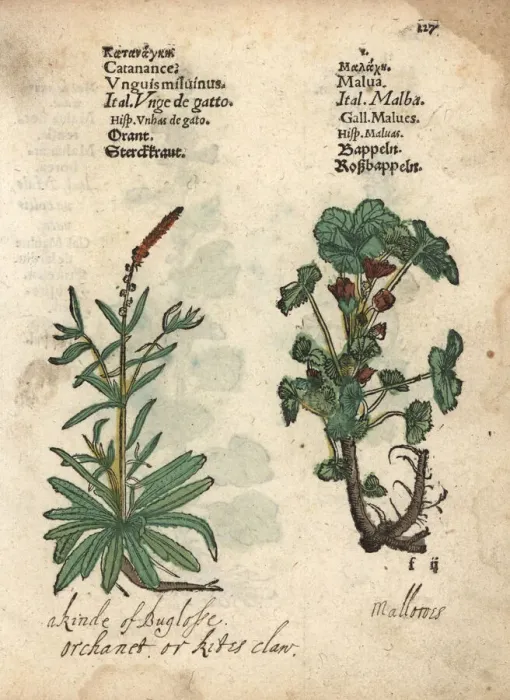 127
Κατανάγκη
Catanance.
Vnguis miluinus.
Ital. Vnge de gatto.
Hisp. Vnhas de gato.
Orant.
Sterckkraut.
Μαλάχη.
Malua.
Ital. Malba.
Gall. Malues.
Hisp. Maluas.
Bappeln.
Roßbappeln.
f ij
a kinde of Buglosse.
orchanet. or kites claw.
Mallowes